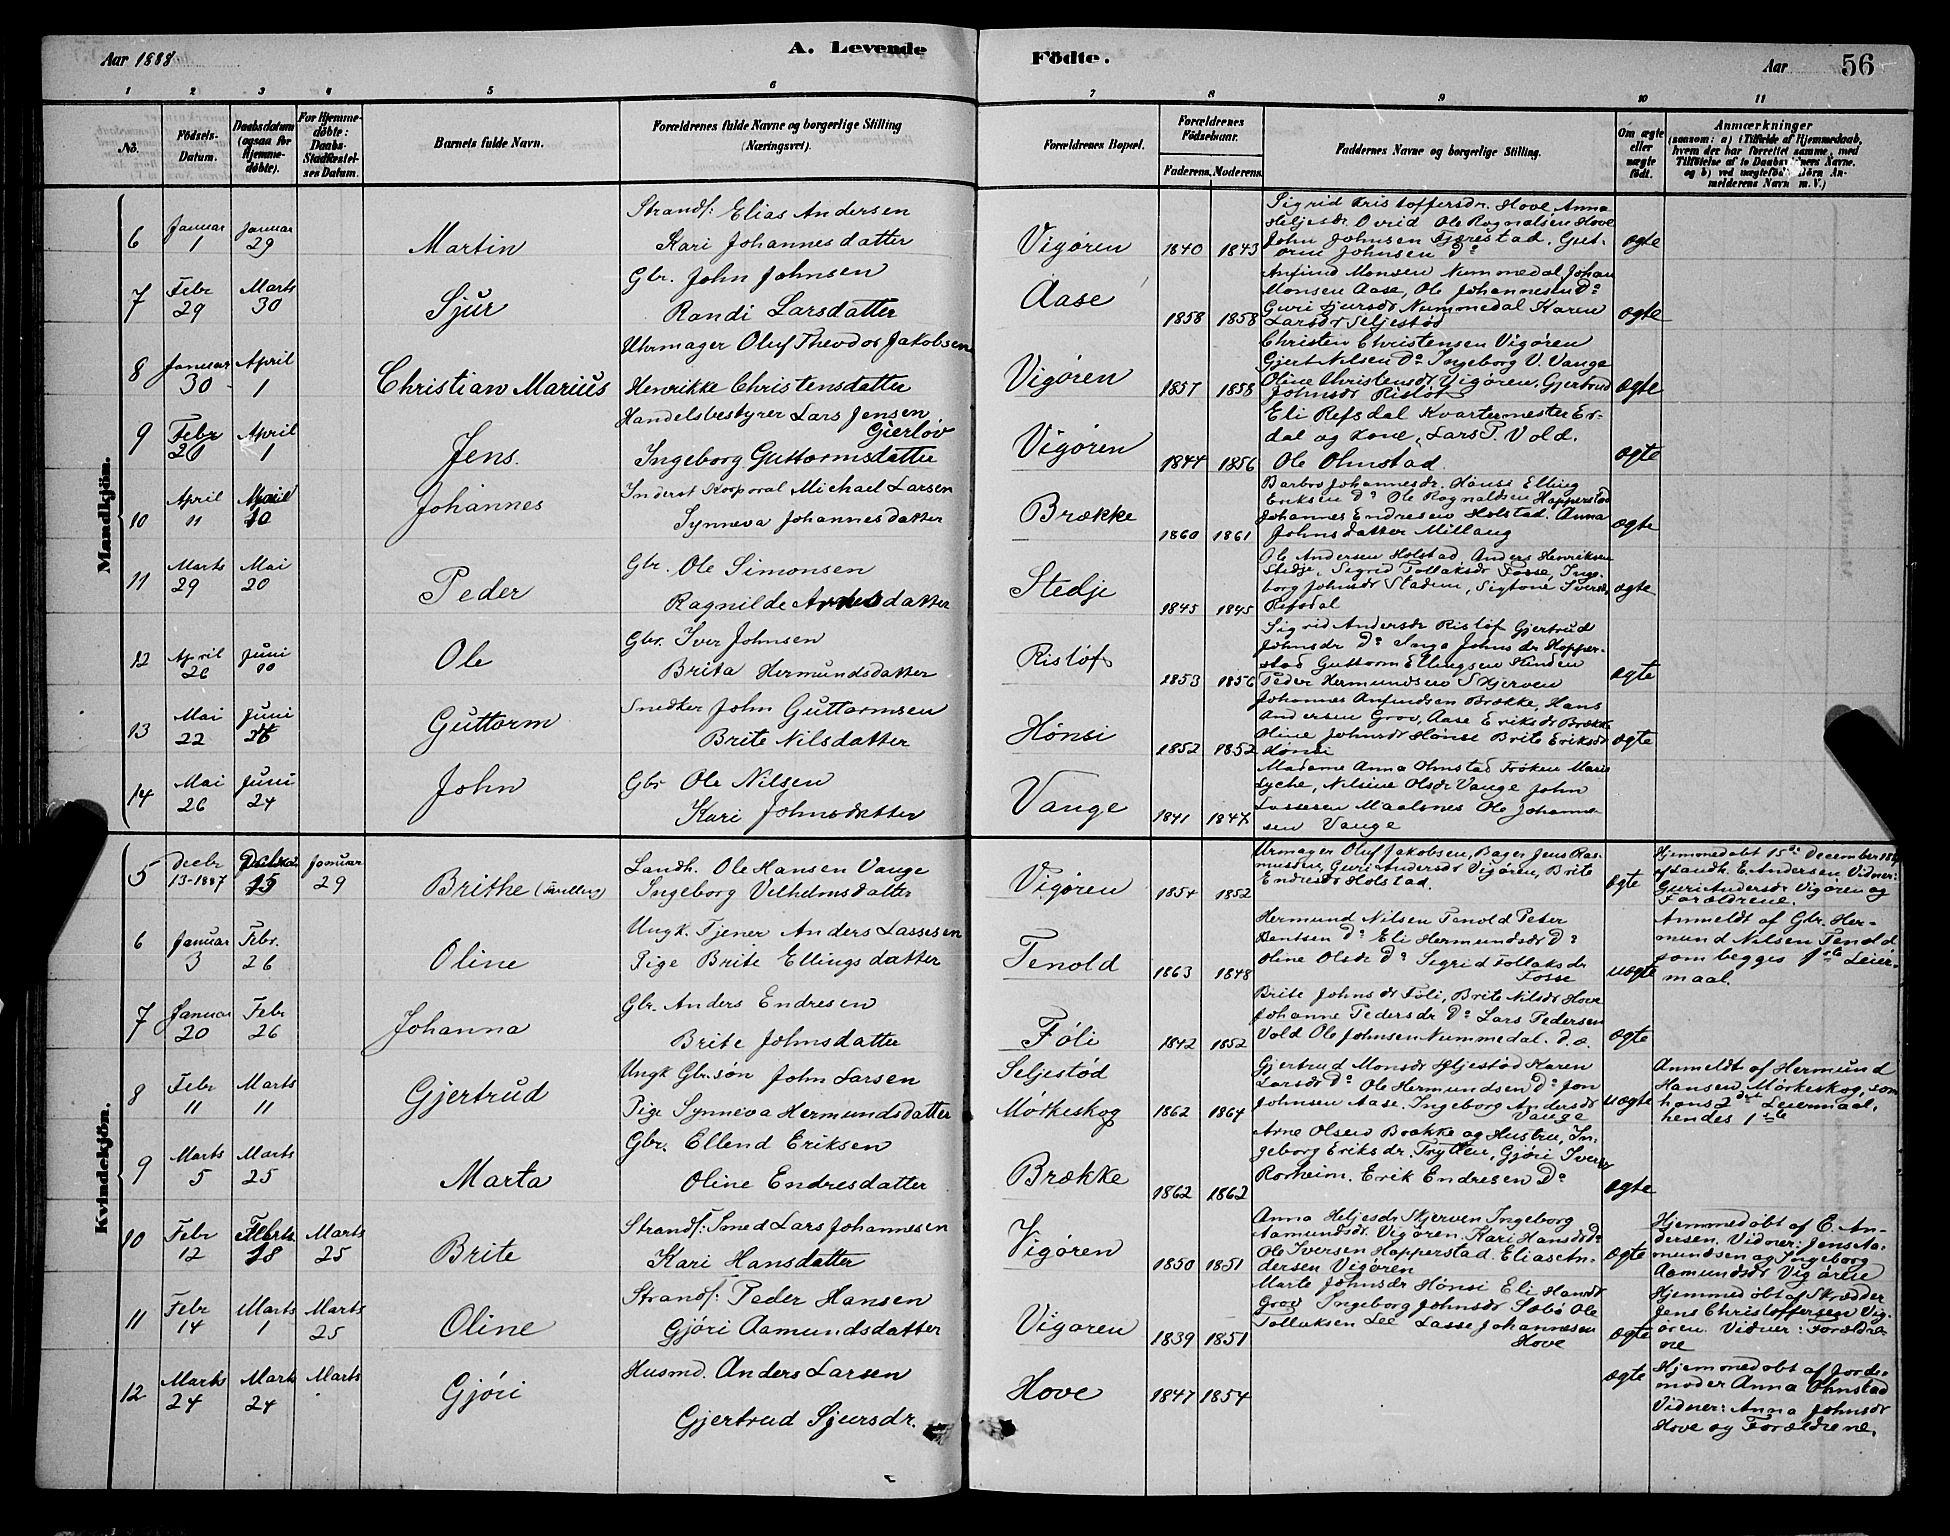 Aar 1888
A. Levende
Födte.
Aar
56
1 2 3 4 5 6 7 8 9 10 11
No.
Födsels-Datum.
Daabsdatum (ogsaa for Hjemme-döbte).
For Hjemme-döbte: Daabs-Stadfæstel-ses Datum.
Barnets fulde Navn.
Forældrenes fulde Navne og borgerlige Stilling (Næringsvei).
Forældrenes Bopæl.
Forældrenes Födselsaar.
Faderens. Moderens.
Faddernes Navne og borgerlige Stilling.
Om ægte eller uægte födt.
Anmærkninger
(saasom: a) i Tilfælde af Hjemmedaab, hvem der har forrettet samme, med Tilföielse af to Daabsvidners Navne, og b) ved uægtefödte Börn Anmelderens Navn m. V.)
Mandkjön.
6 Januar 1 Januar 29 Martin
Strands: Elias Andersen
Kari Johannesdatter
Vigøren 1840 1843
Sigrid Kristoffersdr. Hove Anna
Seljesdr Ovrid Ole Rognalsen Hove
John Johnsen Fjærestad. Gut-
orm Johnsen Do
ægte
7 Febr 29 Marts 30 Sjur
Gbr. John Johnsen
Randi Larsdatter
Aase 1858 1858
Anfind Monsen Nummedal Johan
Monsen Aase, Ole Johannesen Do
Guri Sjursdr Nummedal Karen
Larsdr Seljestød
ægte
8 Januar 30 April 1 Christian Marius
Uhrmager Oluf Theodor Jakobsen
Henrikke Christensdatter
Vigøren 1857 1858
Christen Christensen Vigøren
Gjert Nilsen Do Ingeborg V. Vange
Oline Christensdr Vigøren, Gjertrud
Johnsdr Risløf
ægte
9 Febr 26 April 1 Jens.
Handelsbestyrer Lars Jensen
Gierløv
Ingeborg Guttormsdatter
Vigøren 1844 1856
Eli Refsdal Kvartermester Er-
dal og Kone, Lars P. Vold.
Ole Ohnstad.
ægte
10 April 11 10 Johannes
Inderst Korporal Michael Larsen
Synneva Johannesdatter
Brække 1860 1861
Barbro Johannesdr. Hønsi Elling
Eriksen Do Ole Rognaldsen Hopperstad
Johannes Endresen Holstad. Anna
Johnsdatter Millang
ægte
11 Marts 29 Mai 20 Peder
Gbr. Ole Simonsen
Ragnilde datter
Stedje 1845 1845
Ole Andersen Holstad, Anders Henriksen
Stedje, Sigrid Tollaksdr Fosse, Inge-
borg Johnsdr Stadem, Sigtone Iversdr
Refsdal
ægte
12 April 26 Juni 10 Ole
Gbr. Iver Johnsen
Brita Hermundsdatter
Risløf 1853 1856
Sigrid Andersdr Risløf Gjertrud
Johnsdr Do Inga Johnsdr Hopper-
stad Guttorm Ellingsen Hinden
Peder Hermundsen Skjerven
ægte
13 Mai 22 Juni Guttorm
Snedker John Guttormsen
Brite Nilsdatter
Hønsi 1852 1852
Johannes Anfindsen Brække, Hans
Andersen Grov, Aase Eriksdr Brække
Oline Johnsdr Hønsi Brite Eriksdr
Hønsi
ægte
14 Mai 26 Juni 24 John
Gbr Ole Nilsen
Kari Johnsdatter
Vange 1841 1847
Madame Anna Ohnstad Frøken Marie
Lyche, Nilsine Olsdr Vange John
Lassesen Maalsnes Ole Johanne-
sen Vange
Kvindekjön.
5 Decbr 13-1887 15 Januar 29 Brithe (Tvilling)
Landh. Ole Hansen Vange
Ingeborg Vilhelmsdatter
Vigøren 1854 1852
Urmager Oluf Jakobsen, Bager Jens Ras-
mussen, Guri Andersdr Vigøren, Brite
Endresdr Holstad.
ægte
Hjemmedøbt 15de December 1887
af Landh. E. Andersen, Vidner:
Guri Andersdr Vigøren og
Forældrene.
6 Januar 3 Febr. 26 Oline
Ungk. Tjener Anders Lassesen
Pige Brite Ellingsdatter
Tenold 1863 1848
Hermund Nilsen Tenold Peter
Bentsen Do Eli Hermundsdr Do
Oline Olsdr Do Sigrid Tollaksdr
Fosse
uægte
Anmeldt af Gbr. Her-
mund Nilsen Tenold
som begges 1ste Leier-
maal.
7 Januar 20 Febr 26 Johanna
Gbr. Anders Endresen
Brite Johnsdatter
Føli 1842 1852
Brite Johnsdr Føli, Brite Nilsdr Hove
Johanne Pedersdr Do Lars Pedersen
Vold Ole Johnsen Nummedal. d.æ.
ægte
8 Febr 11 Marts 11 Gjertrud
Ungk Gbr.søn John Larsen
Pige Synneva Hermundsdatter
Seljestød
Mørkeskog 1862 1864
Gjertrud Monsdr Seljestød Karen
Larsdr Do Ole Hermundsen Do Jon
Johnsen Aase. Ingeborg Andersdr
Vange
uægte
Anmeldt af Hermund
Hansen Mørkeskog, som
hans 2det Leiermaal,
hendes 1ste
9 Marts 5 Marts 25 Marta
Gbr. Ellend Eriksen
Oline Endresdatter
Brække 1862 1862
Arne Olsen Brække og Hustru, In-
geborg Eriksdr. Trytten, Gjøri Iversdr
Rorheim. Erik Endresen Do
ægte
10 Febr 12 18 Marts 25 Brite
Strands: Smed Lars Johannesen
Kari Hansdatter
Vigøren 1850 1851
Anna Heljesdr Skjerven Ingeborg
Aamundsdr. Vigøren. Kari Hansdr Do
Ole Iversen Hopperstad. Elias An-
dersen Vigøren
ægte
Hjemmedøbt af E. An-
dersen. Vidner: Jens Aa-
mundsen og Ingeborg
Aamundsdr Vigøren
11 Febr 14 Marts 1 Marts 25 Oline
Strands: Peder Hansen
Gjöri Aamundsdatter
Vigøren 1839 1851
Marte Johnsdr Hønsi Eli Hansdr
Grov Ingeborg Johnsdr Sæbø Ole
Tollaksen Lee Lasse Johannesen
Hove
ægte
Hjemmedøbt af Skrædder
Jens Christoffersen Vig-
øren. Vidner: Forældre-
ne
12 Marts 24 Marts 24 Marts Gjöri
Husmd. Anders Larsen
Gjertrud Sjursdr.
Hove 1847 1854
ægte
Hjemmedøbt af Jorde-
moder Anna Ohnstad
Vidner: Anna Johnsdr
Hove og Forældrene.